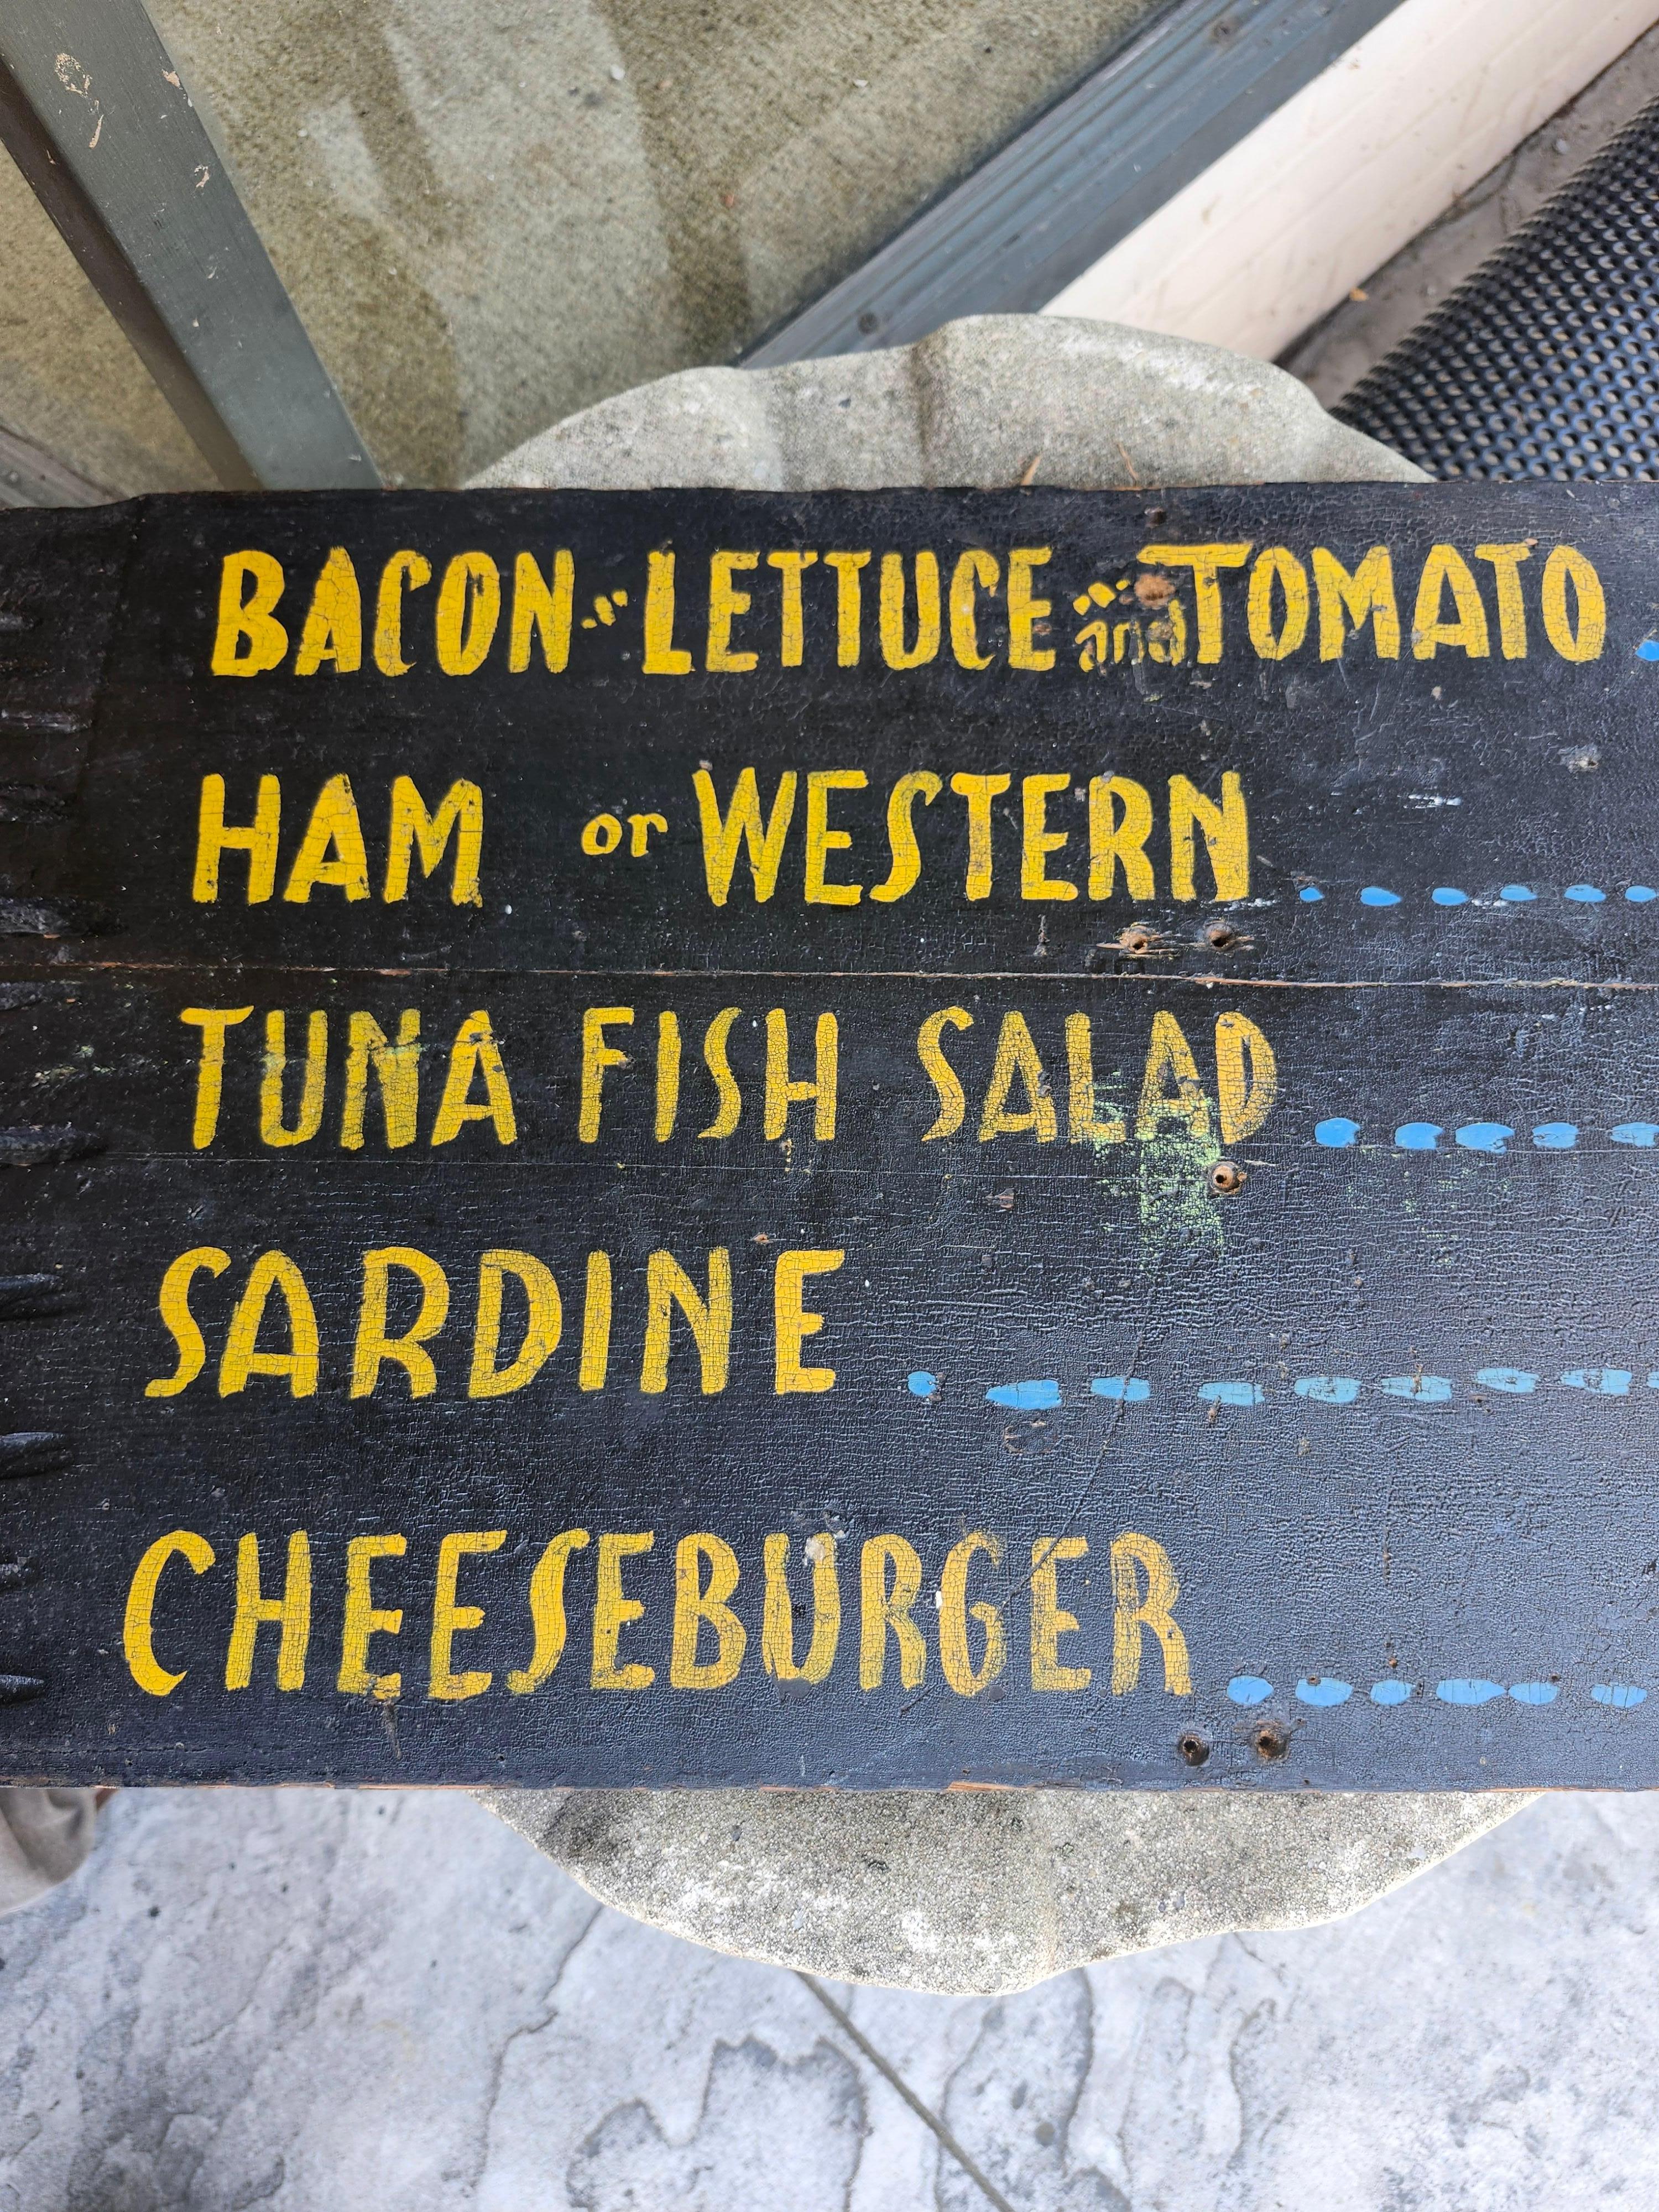 BACON LETTUCE and TOMATO
HAM or WESTERN
TUNA FISH SALAD
SARDINE
CHEESEBURGER